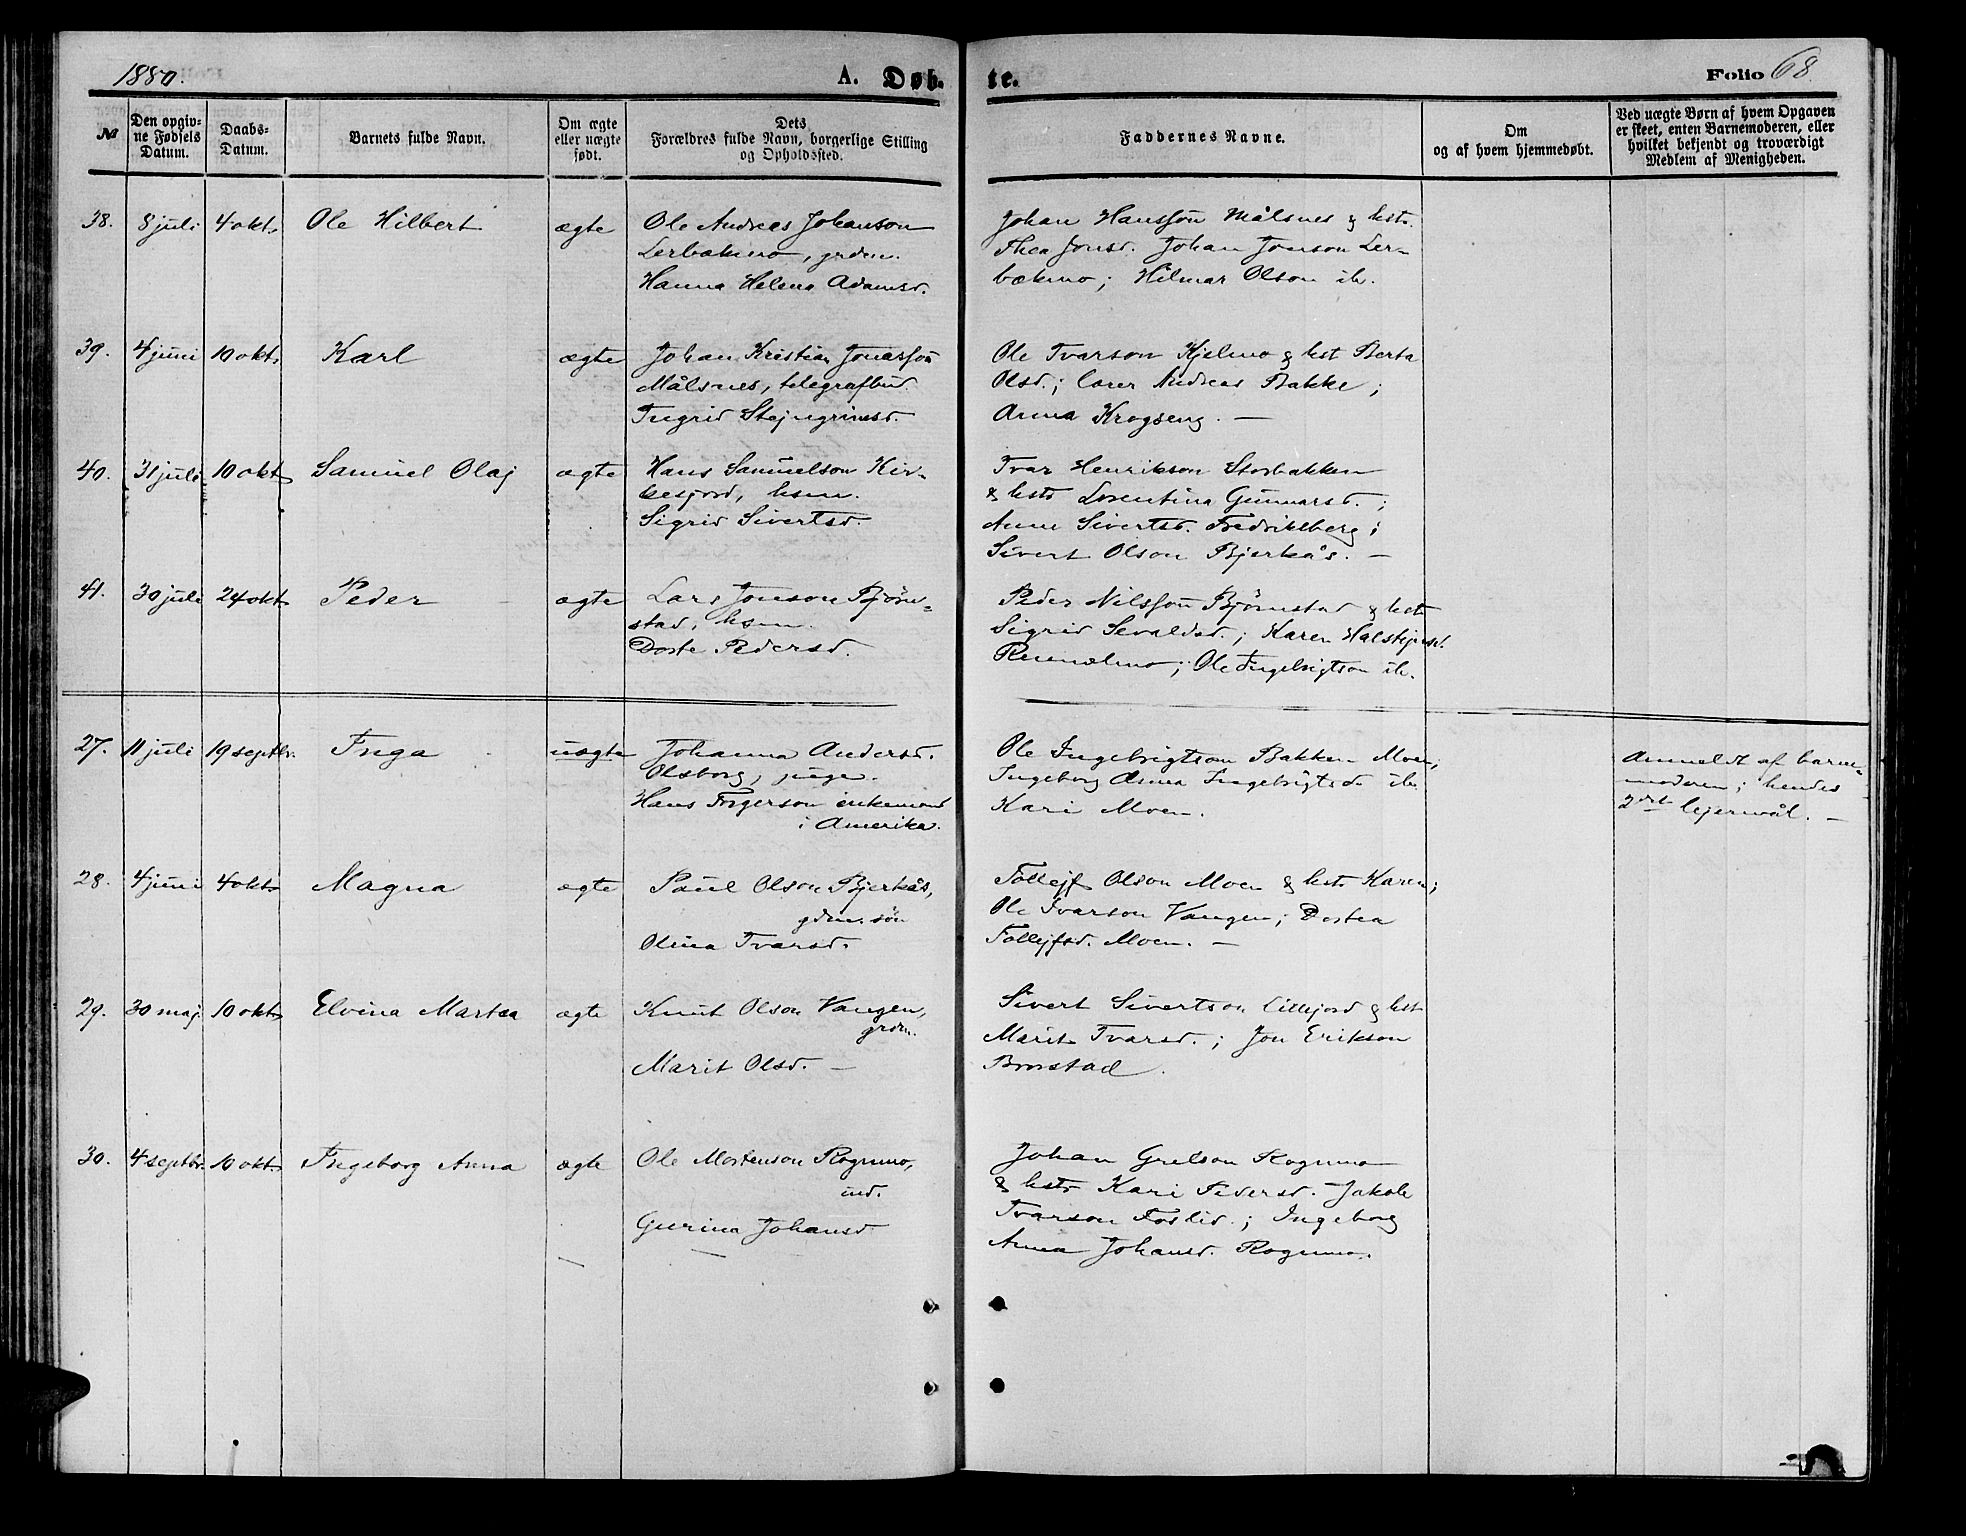 1880.
A. Døb-
te.
Folio 68.
№
Den opgiv-
ne Fødsels
Datum.
Daabs-
Datum.
Barnets fulde Navn.
Om ægte
eller uægte
født.
Dets
Forældres fulde Navn, borgerlige Stilling
og Opholdssted.
Faddernes Navne.
Om
og af hvem hjemmedøbt.
Ved uægte Børn af hvem Opgaven
er skeet, enten Barnemoderen, eller
hvilket bekjendt og troværdigt
Medlem af Menigheden.
38. 8 juli 4 okt. Ole Hilbert ægte
Ole Andreas Johanson
Lerbækmo, grdm.
Hanna Helena Adamsd.
Johan Hansson Målsnes & kst.
Thea Jonsd. Johan Jonson Ler-
bækmo; Hilmar Olson ib.
39. 4 juni 10 okt. Karl ægte
Johan Kristian Jonasson
Målsnes, telegrafbud.
Ingrid Stejngrimsd.
Ole Ivarson Kjelmo & kst Berta
Olsd.; lærer Andreas Bakke;
Anna Krogseng. —
40. 31 juli 10 okt Samuel Olaj ægte
Hans Samuelson Kir-
kesjord, hsm.
Sigrid Sivertsd.
Ivar Henrikson Storbakken
& kst. Lorentina Gunnarsd.;
Anne Sivertsd. Fredrikberg;
Sivert Olson Bjerkås. —
41. 30 juli 24 okt Peder ægte
Lars Jonson Bjørn-
stad, hsm.
Dorte Pedersd.
Peder Nilsson Bjørnstad & kst
Sigrid Sevaldsd.; Karen Halstejnsd.
Ole Ingebrigtson ib.
27. 11 juli 19 septbr. Inga uægte
Johanna Andersd.
Olsborg, pige.
Hans Torgerson enkemand
i Amerika.
Ole Ingebrigtson Bakken Moen,
Ingeborg Anna Ingebrigtsd ib.
Kari Moen.
Anmeldt af barne-
moderen; hendes
2det lejermål. —
28. 4 juni 4 okt. Magna ægte
Paul Olson Bjerkås,
gdm. søn
Olina Ivarsd.
Tollejf Olson Moen & kst. Karen;
Ole Ivarson Vangen; Dortea
Tollejfsd. Moen. —
29. 30 maj 10 okt. Elvina Martea ægte
Knut Olson Vangen,
grdm.
Marit Olsd. —
Sivert Sivertson Lillejord & kst
Marit Ivarsd.; Jon Erikson
Brostad.
30. 4 septbr. 10 okt. Ingeborg Anna ægte
Ole Mortenson Rognmo,
ind.
Gurina Johansd
Johan Grelson Rognmo
& kst. Kari Pedersd. Jakob
Ivarson Foslid.; Ingeborg
Anna Johansd. Rognmo.